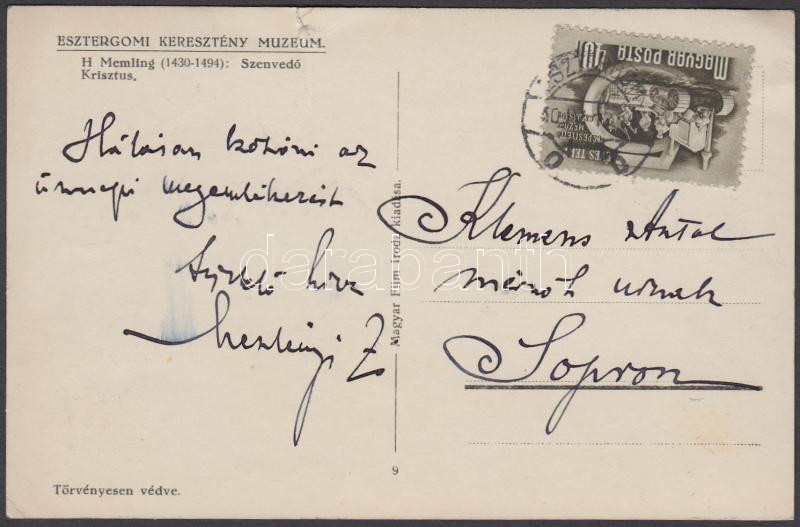 ESZTERGOMI KERESZTÉNY MUZEUM.
H Memling (1430-1494): Szenvedő
Krisztus.
Hálásan köszöni az
ünnepi megemlékezést
Meszlényi Z
Magyar Film Iroda kiadása.
9
Törvényesen védve.
MAGYAR POSTA
40f
Klemens Antal
mérnök úrnak
Sopron
darabanth